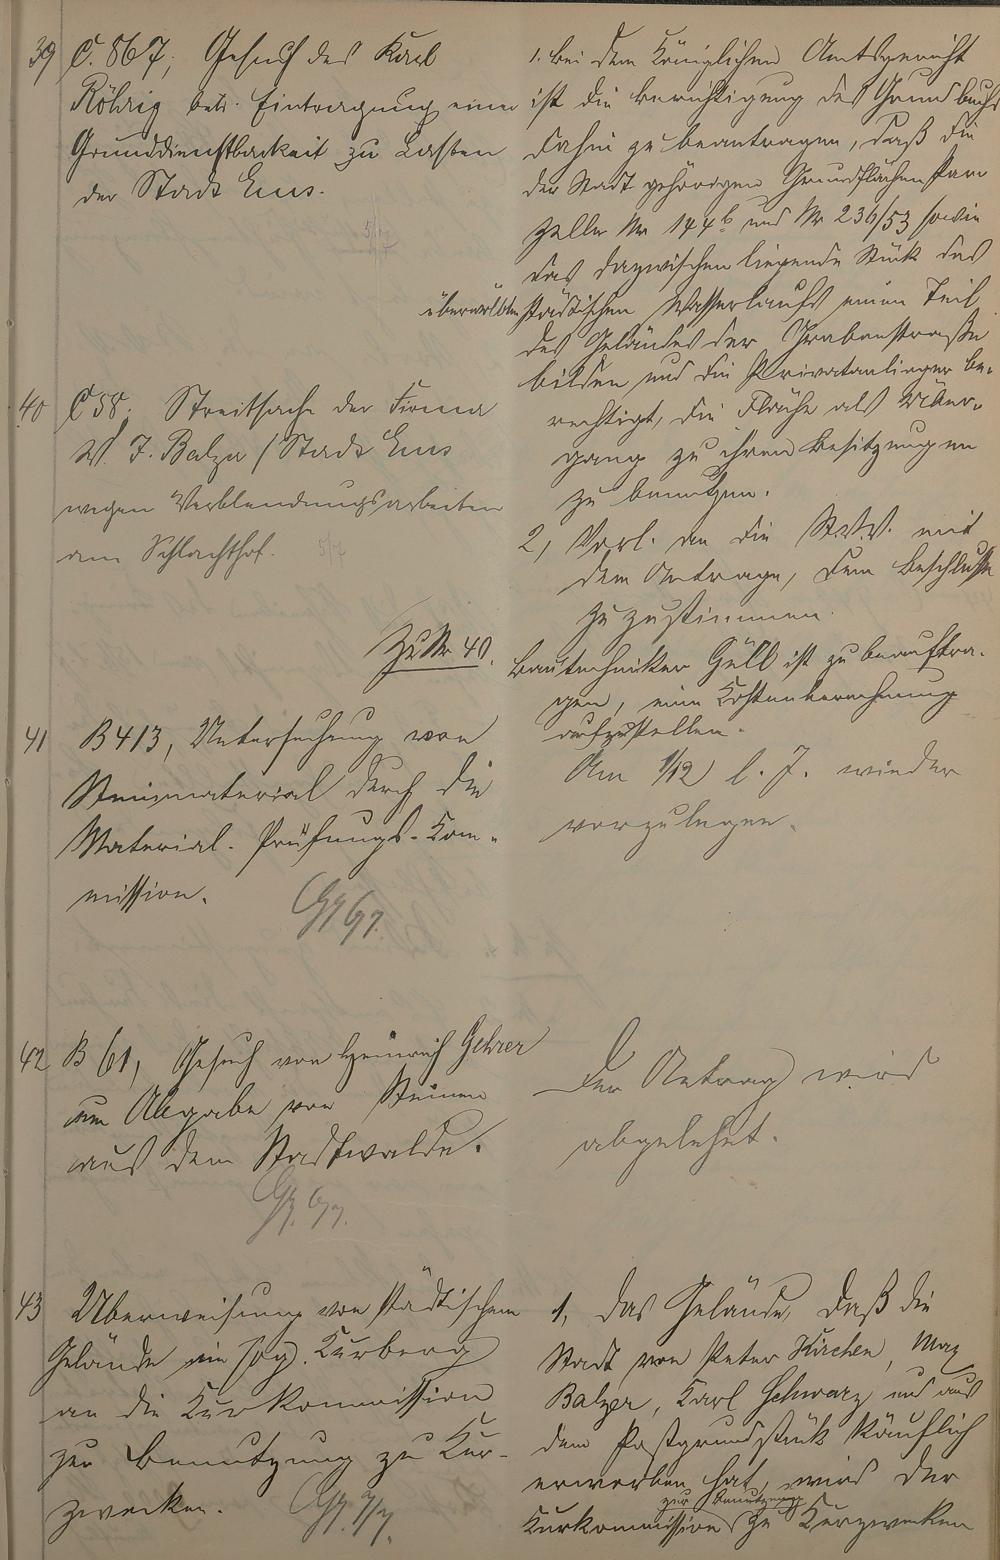 39 C. 867, Gesuch des Karl
Röhrig betr. Eintragung einer
Grunddienstbarkeit zu Lasten
der Stadt Ems.
5/7
1. Bei dem Königlichen Amtsgericht
ist die Berichtigung des Grundbuchs
dahin zu beantragen, daß die
der Stadt gehörigen Grundflächen Par
zellen Nr 144b und Nr 236/53 sowie
das dazwischen liegende Stück des
überwölbten städtischen Wasserlaufs einen Teil
des Geländes der Grabenstraße
bilden und die Privatanlieger be-
rechtigt, die Fläche als Über-
gang zu ihren Besitzungen
zu benutzen.
2, Vorl. an die St.V.V. mit
dem Antrage, dem Beschlusse
zuzustimmen.
40 C 58. Streitsache der Firma
W. J. Balzer / Stadt Ems
wegen Verblendungsarbeiten
am Schlachthof. 5/7
Zu Nr 40.
Bautechniker Güll ist zu beauftra-
gen, eine Kostenberechnung
aufzustellen.
41 B 413, Untersuchung von
Steinmaterial durch die
Material-Prüfungs-Kom-
mission.
Am 1/12 l. J. wieder
vorzulegen.
42 B 61, Gesuch von Heinrich Gehrer
um Abgabe von Steinen
aus dem Stadtwalde.
Der Antrag wird
abgelehnt.
43 Überweisung von städtischem
Gelände im sog. Kurberg
an die Kurkommission
zur Benutzung zu Kur-
zwecken.
1, Das Gelände, daß die
Stadt von Peter Kirchen, Max
Balzer, Karl Schwarz und aus
dem Postgrundstück käuflich
erworben hat, wird der
zur Benutzung
Kurkommission zu Kurzwecken